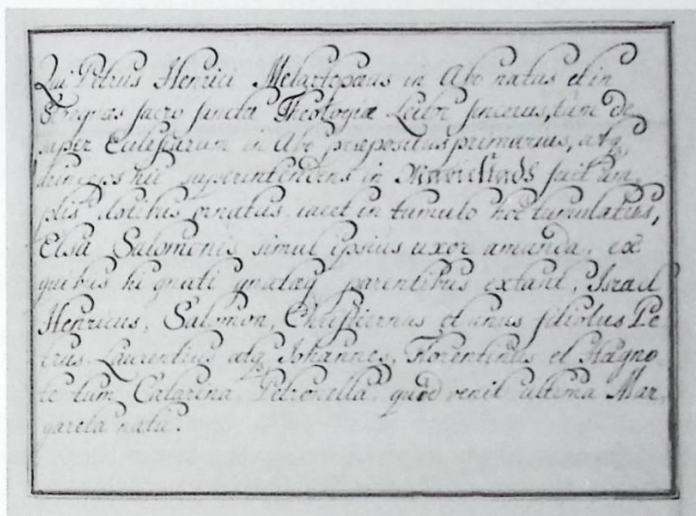 Qui Petrus Henrici Melartopæus in Abo natus et in
sacro sancta Theologiæ Lector sincerus, tum de
super Eclesiarum in Abo præpositus primarius, atq
princeps hic superintendens in Mariestads fuit am
plis dotibus ornatus iacet in tumulo hoc tumulatus,
Elsa Salomonis simul ipsius uxor amanda, ex
quibus hi gnati gnatæq parentibus extant, Israel
Henricus, Salomon, Christiernus et unus filiolus Pe
trus Laurentius atq Johannes, Florentinus et Magno
te tum Catarina Petronella quod venit ultima Mar
gareta natu.